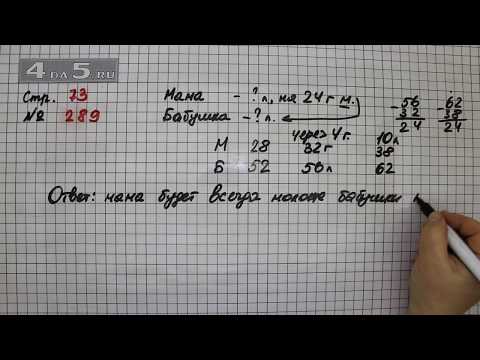 4DA5.RU
Стр. 73
№ 289
Мама - ? л, на 24 г м.
Бабушка - ? л.
- 56
32
24
- 62
38
24
через 4 г. 10 л
М 28 32 г 38
Б 52 56 л 62
Ответ: мама будет всегда моложе бабушки